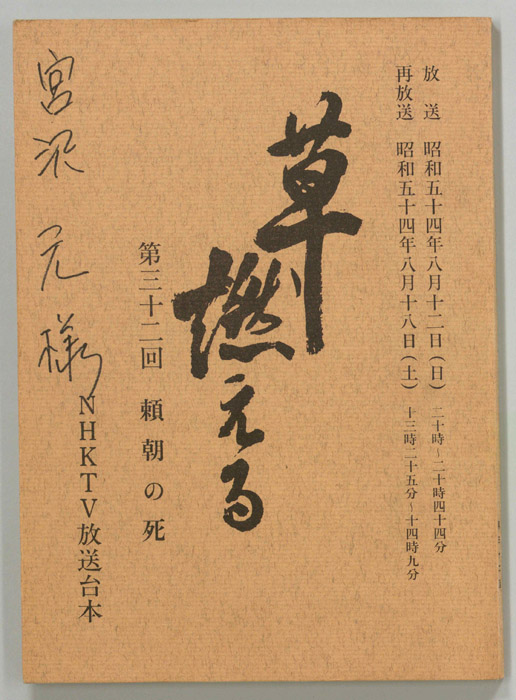 放送　昭和五十四年八月十二日(日)　二十時～二十時四十四分
再放送　昭和五十四年八月十八日(土)　十三時二十五分～十四時九分
草燃える
第三十二回　頼朝の死
NHKTV放送台本
宮沢　元様